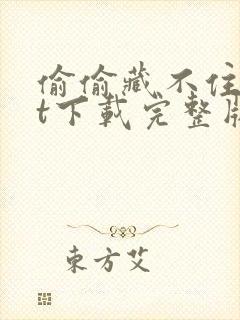 偷偷藏不住
t下载完整版
東方艾